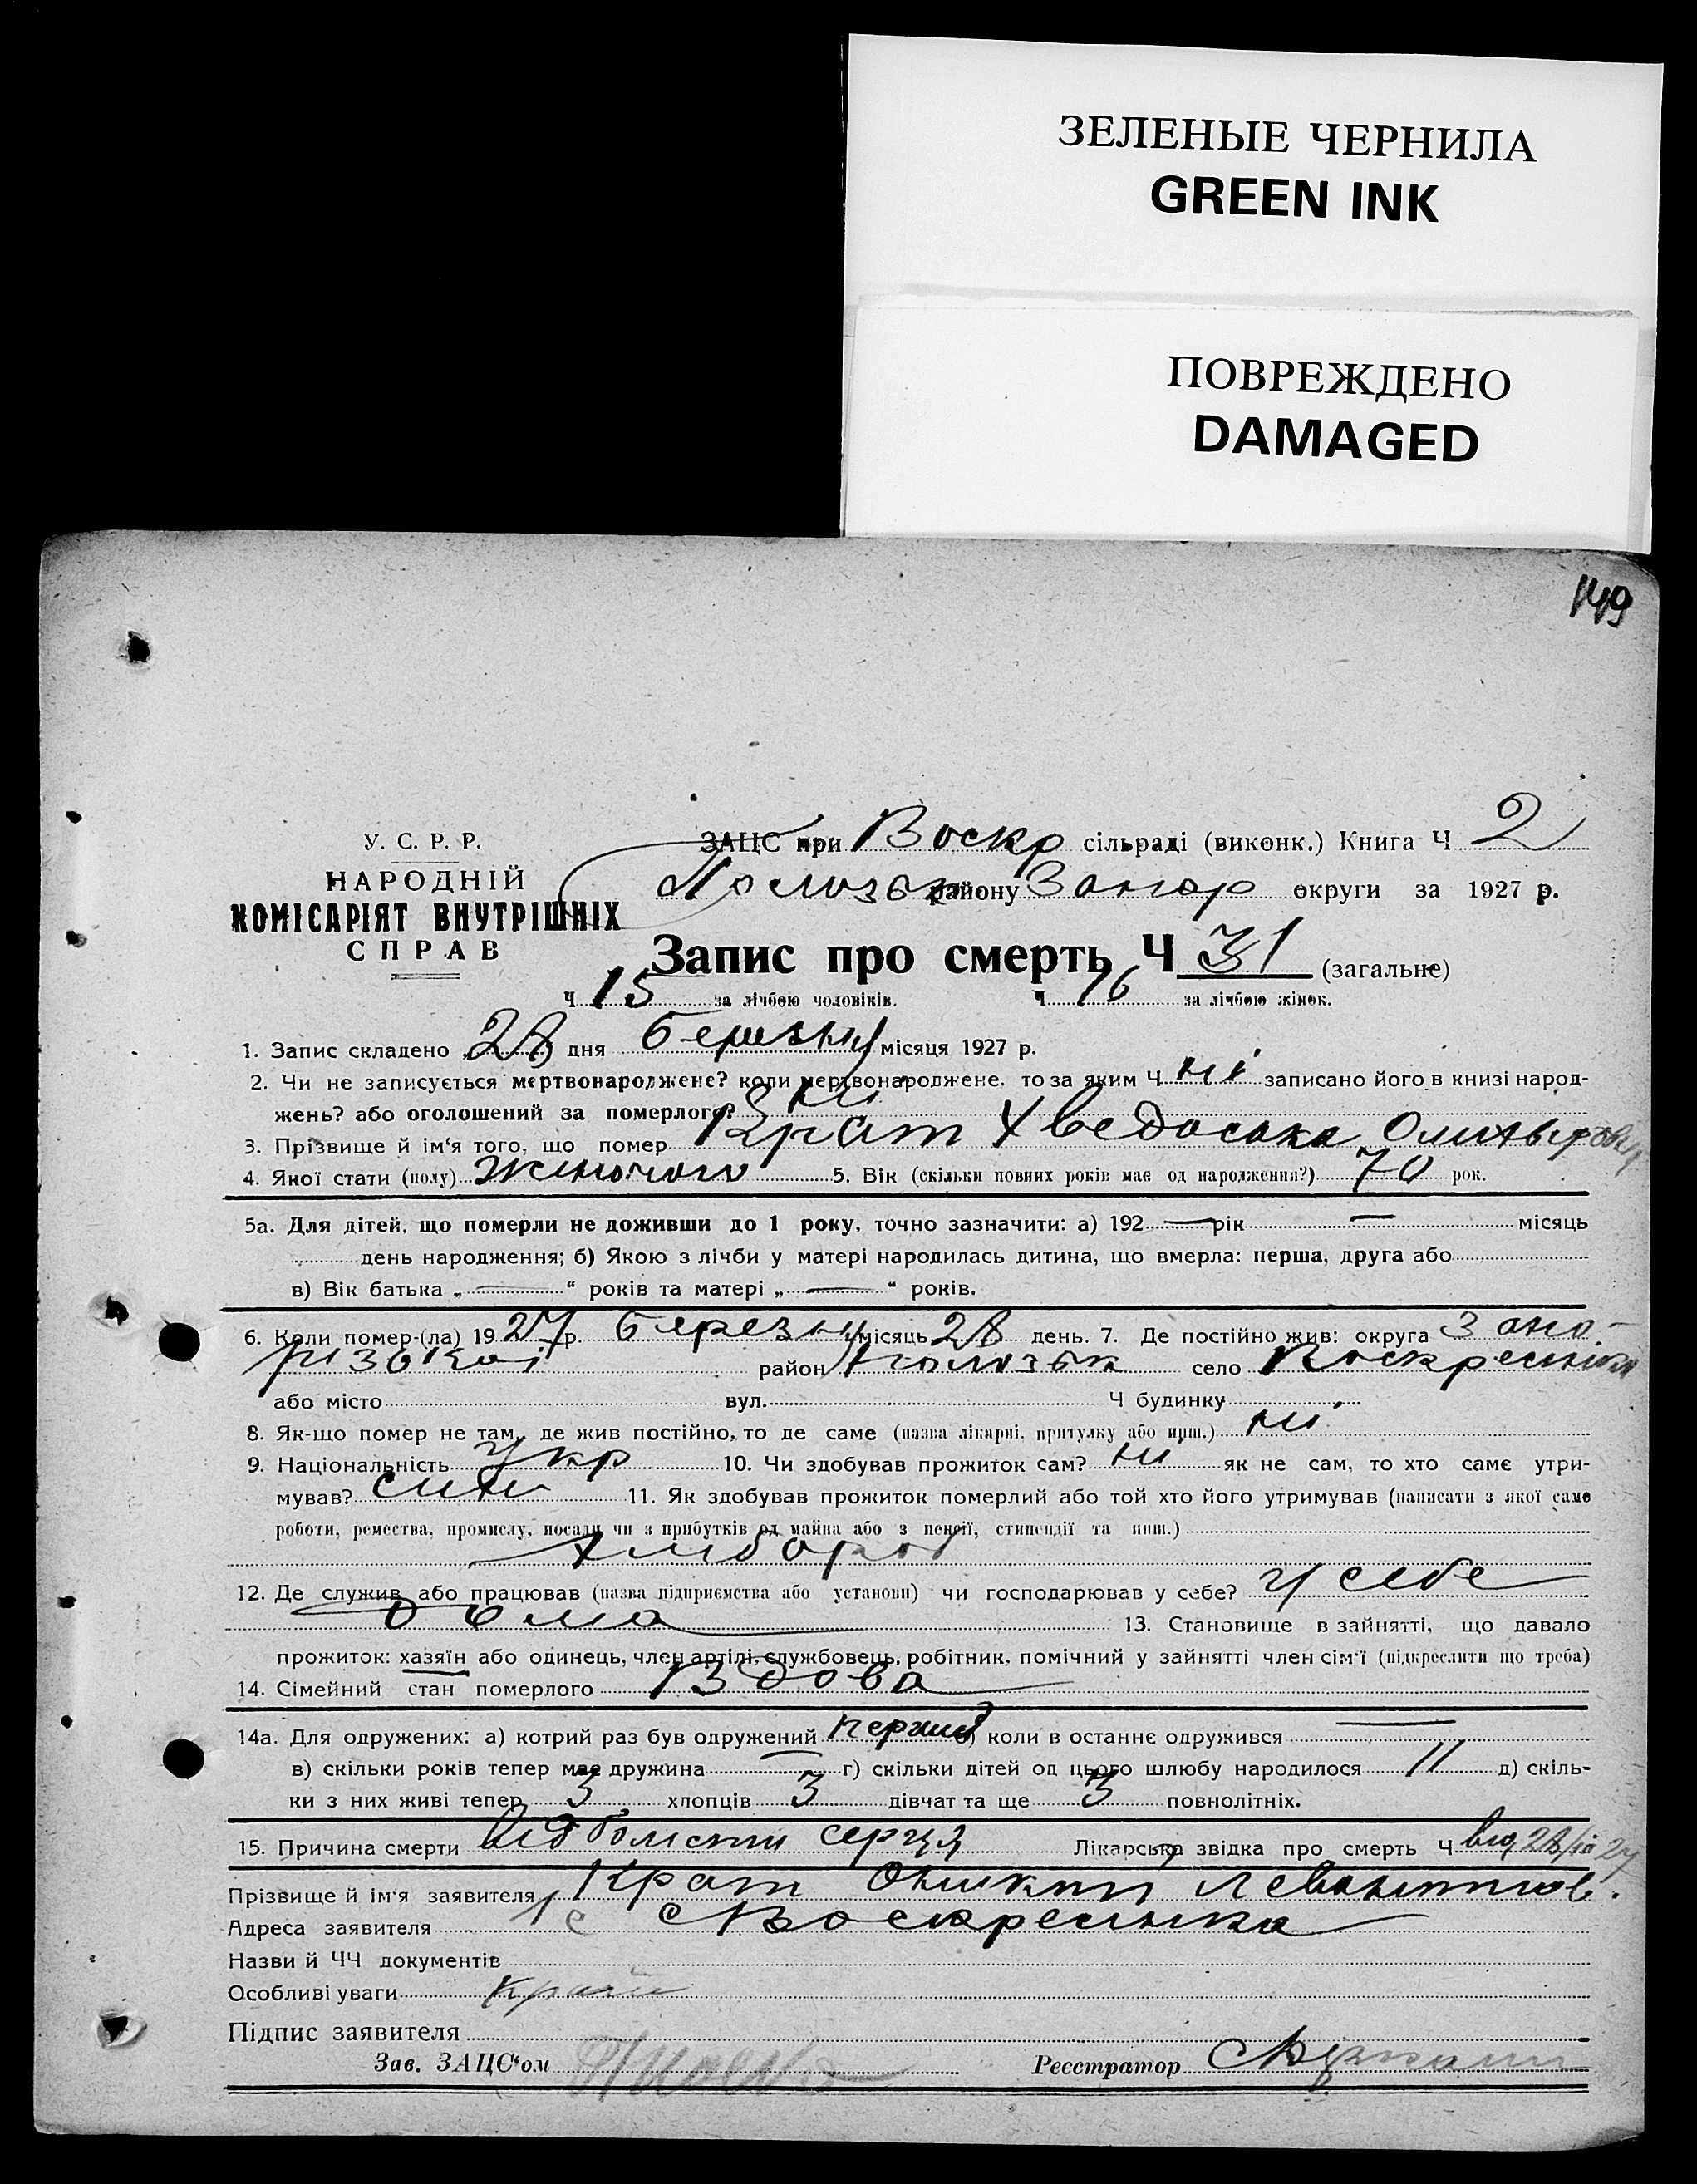 ЗЕЛЕНЫЕ ЧЕРНИЛА
GREEN INK
ПОВРЕЖДЕНО
DAMAGED
149
У. С. Р. Р.
НАРОДНІЙ
КОМІСАРІЯТ ВНУТРІШНІХ
СПРАВ
ЗАЦС при Воскр сільраді (виконк.) Книга Ч 2
району Запор округи за 1927 р.
Запис про смерть Ч 31 (загальне)
Ч 15 за лічбою чоловіків. Ч 16 за лічбою жінок.
1. Запис складено „28" дня березня місяця 1927 р.
2. Чи не записується мертвонароджене? коли мертвонароджене, то за яким Ч ні записано його в книзі народ-
жень? або оголошений за померлого? ні
3. Прізвище й ім'я того, що помер Крат Хведоська
4. Якої стати (полу) Жіночого 5. Вік (скільки повних років має од народження?) 70 рок.
5а. Для дітей, що померли не доживши до 1 року, точно зазначити: а) 192 — рік — місяць
день народження; б) Якою з лічби у матері народилась дитина, що вмерла: перша, друга або
в) Вік батька „ — “ років та матері „ — “ років.
6. Коли помер-(ла) 1927 р. березня місяць 28 день. 7. Де постійно жив: округа Запо-
різької район село Воскресінка
або місто вул. Ч будинку
8. Як-що помер не там, де жив постійно, то де саме (назва лікарні, притулку або инш.) ні
9. Національність укр 10. Чи здобував прожиток сам? ні як не сам, то хто саме утри-
мував? син 11. Як здобував прожиток померлий або той хто його утримував (написати з якої саме
роботи, ремества, промислу, посади чи з прибутків од майна або з пенсії, стипендії та инш.)
Хлібороб
12. Де служив або працював (назва підприємства або установи) чи господарював у себе? у себе
дома 13. Становище в зайнятті, що давало
прожиток: хазяїн або одинець, член артілі, службовець, робітник, помічний у зайнятті член сім'ї (підкреслити що треба)
14. Сімейний стан померлого Вдова
14а. Для одружених: а) котрий раз був одружений перший б) коли в останнє одружився —
в) скільки років тепер має дружина — г) скільки дітей од цього шлюбу народилося 11 д) скіль-
ки з них живі тепер 3 хлопців 3 дівчат та ще 3 повнолітніх.
15. Причина смерти від болісти серця Лікарська звідка про смерть Ч
Прізвище й ім'я заявителя Крат
Адреса заявителя с Воскресінка
Назви й ЧЧ документів
Особливі уваги
Підпис заявителя
Зав. ЗАЦС'ом Реєстратор